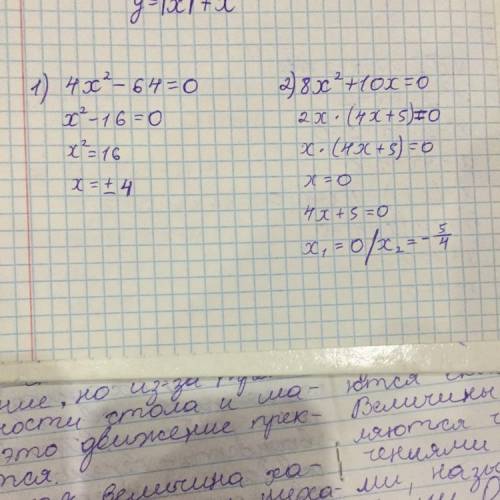 y=|x|+x
1) 4x²-64=0
x²-16=0
x²=16
x=±4
2) 8x²+10x=0
2x·(4x+5)=0
x·(4x+5)=0
x=0
4x+5=0
x₁=0/x₂=-5/4
ние, но из-за
ности стола и ма-
это движение прек-
тся.
величина ха-
ются
Величины
ляются
чениями
ми, назы